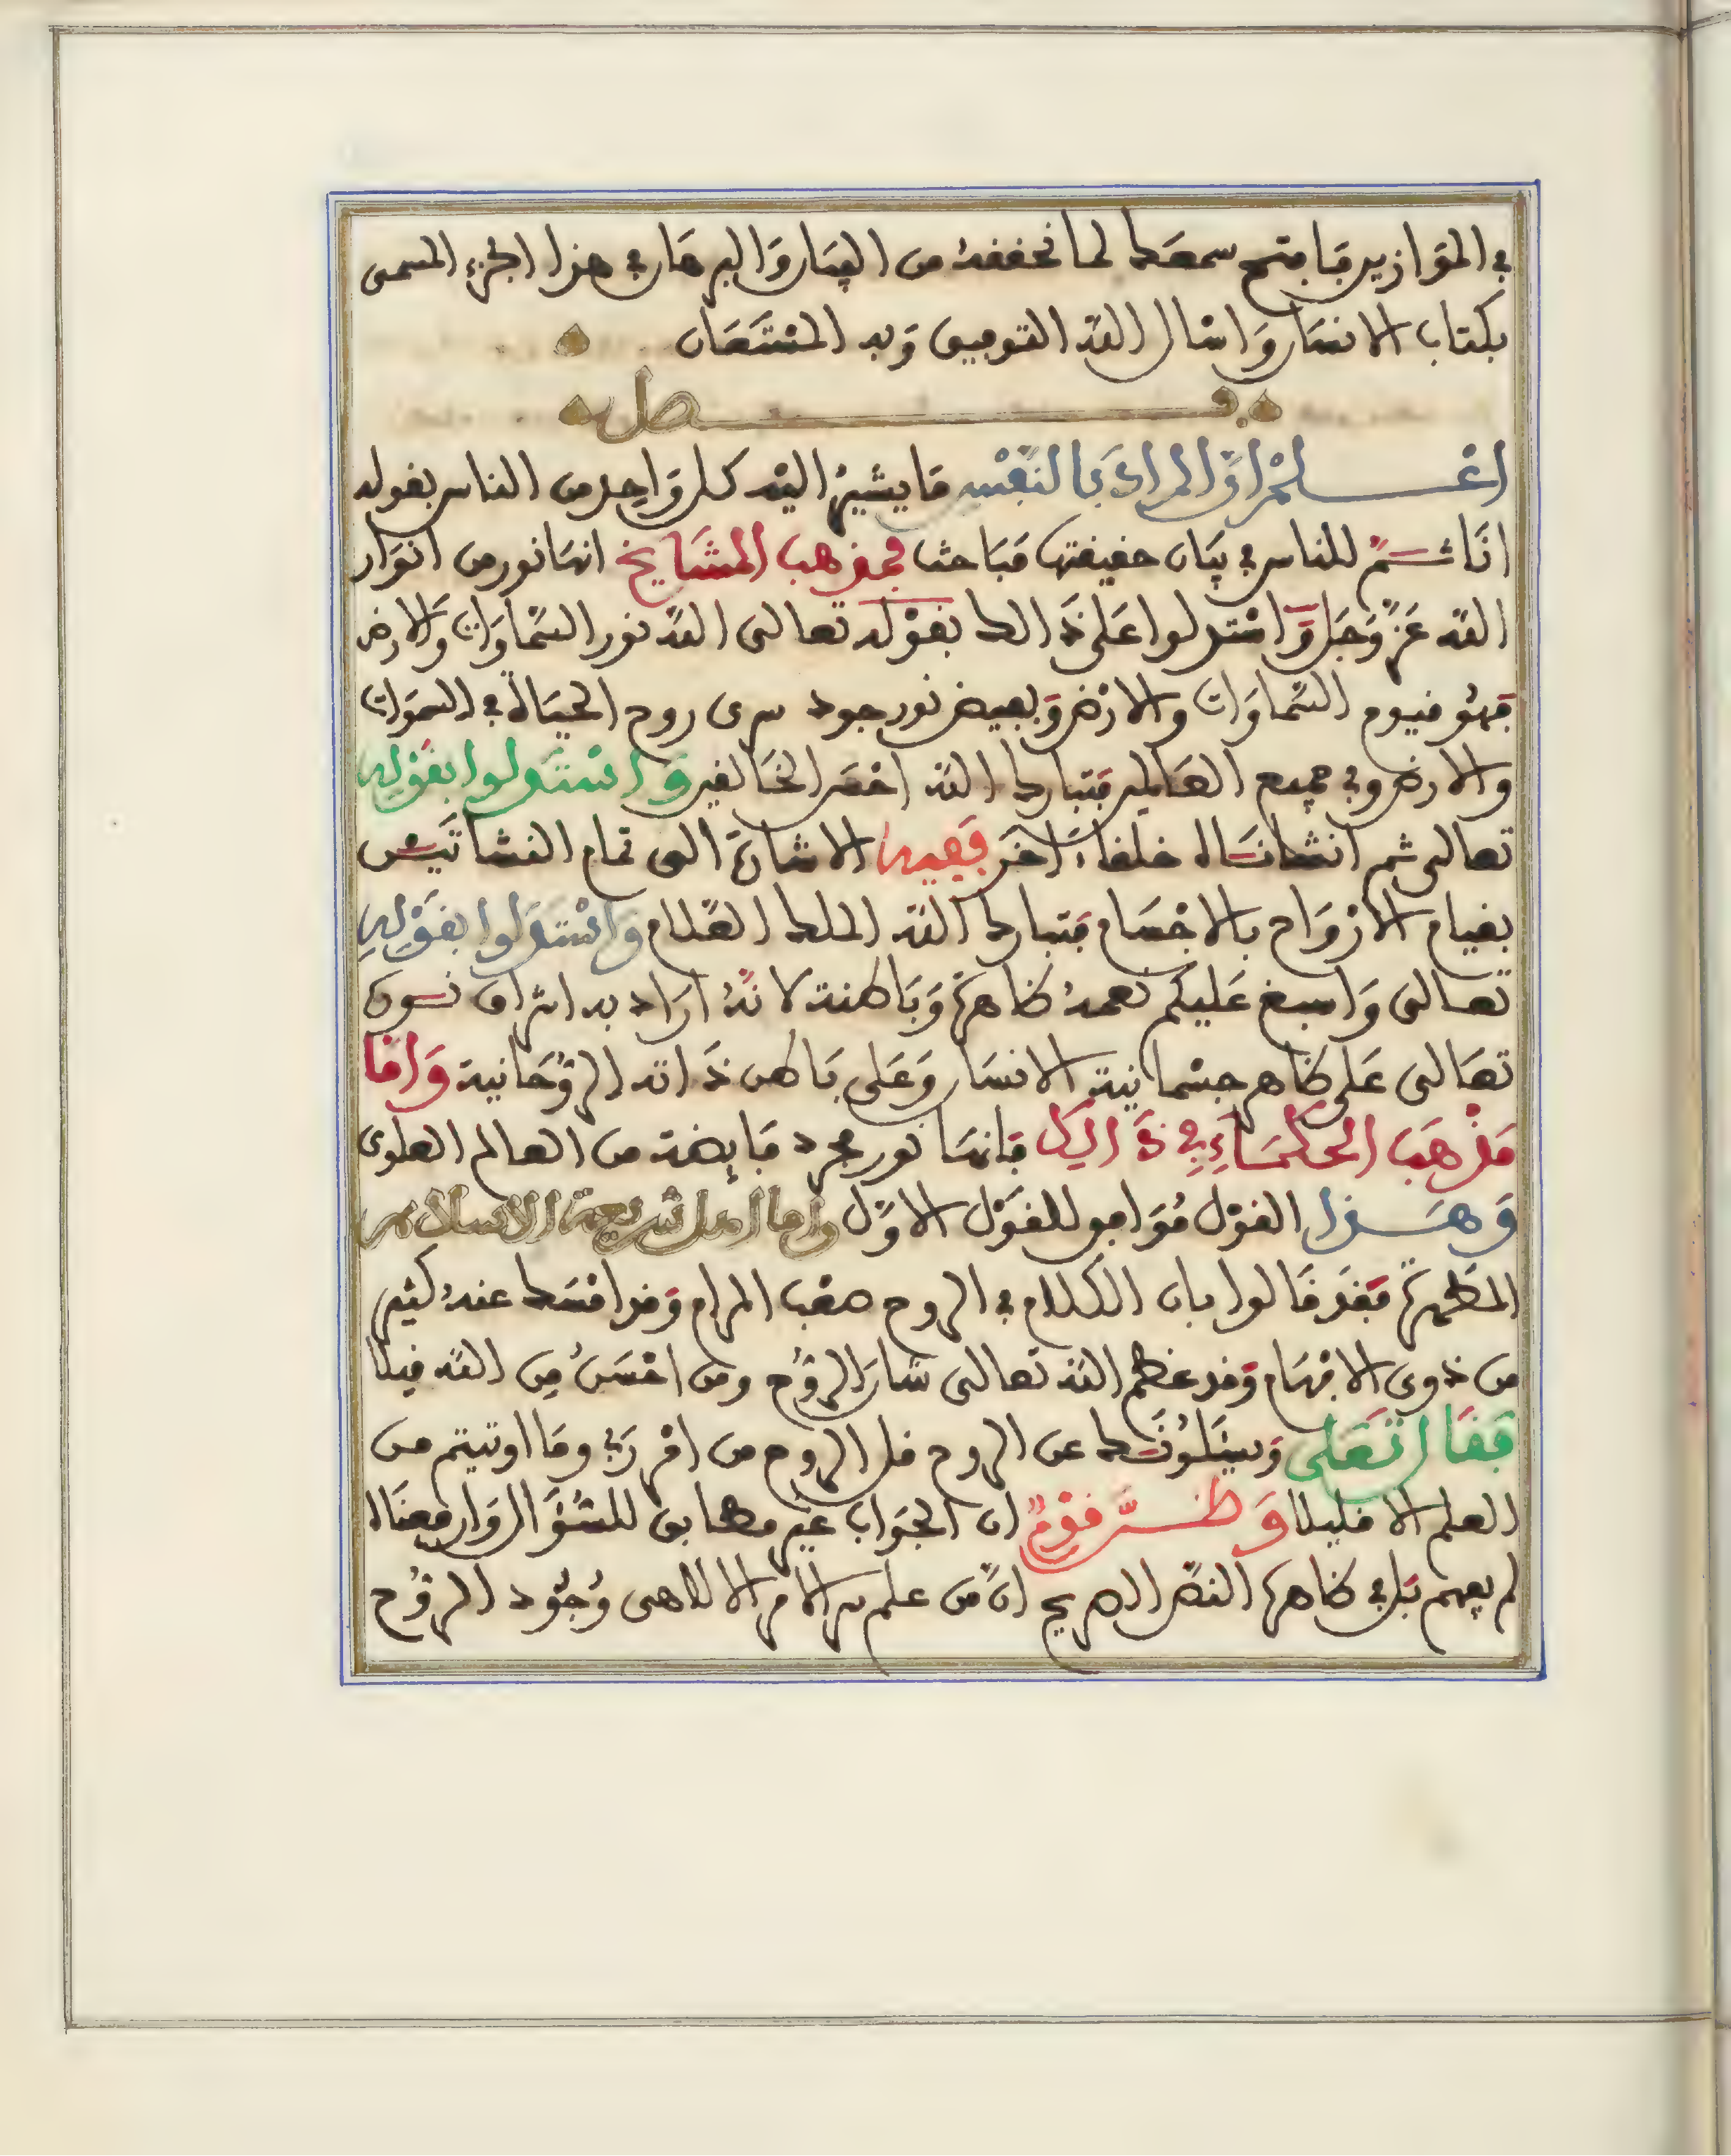 في الموازين فافتح سمعك لما نحققه من البيان والبرهان في هذا الجزء المسمى
بكتاب الانسان واسال الله التوفيق وبه المستعان
فصل
اعْلمْ انَّ المرادَ بالنفْس ما يشيرُ اليْه كل واحد من الناس بقوله
انَا ثمَّ للناس في بيَان حقيقتها مَبَاحث فمذهب المشَايخ انهَا نور من انوَار
الله عَزَّ وَجَل وَاسْتدلوا عَلى ذَالك بقوْله تعالى الله نور السَّماوَات وَالارض
فهُو قيوم السَّماوَات والارْض وَبفيض نور جوده سرى روح الحيَاة في السموَات
والارض وفي جميع العَالمين فتبارك الله احْسَن الخَالقين وَاسْتَدلوا بقوْله
تعالى ثم انشانَاه خلقا ءاخَر ففيه الاشارَة الى تمام النشاتَيْن
بقيام الارْوَاح بالاجْسَام فتبارك الله الملك العَلام وَاسْتدَلوا بقَوْلِه
تعالى وَاسبغ عَليكم نعمهُ ظاهرَة وَبَاطنة لانَّهُ ارَاد به اشراق نوره
تعَالى عَلى ظاهر جسْمانية الانسَان وَعَلى بَاطن ذَاته الرُّوحَانية وَامَّا
مَذْهَب الحكمَاءِ فِي ذَالِكَ فانهَا نور مجرد فَايضة من العالم العلوى
وَهَذا القوْل مُوَافق للقوْل الاوَّل واما اهل شريعة الاسلام
المطَهرَة فقَد قَالوا بان الكلام في الروح صعْب المرام وَقد امْسَك عنهُ كثير
من ذوى الافهَام وَقد عظم الله تعالى شان الرُّوح ومن احْسَنُ مِن الله قيلا
فقَال تَعَلى وَيسْئلونَك عن الروح قل الروح من امْر رَبي ومَا اوتيتم من
العلم الا قليلا وَظنَّ قوْمٌ ان الجوَاب غيْر مطابق للسُّؤَال وَان معنَاه
لم يفهم بَل في ظاهر النصّ الصريح انَّ من علم سر الامر الالاهى وُجُود الرُّوح